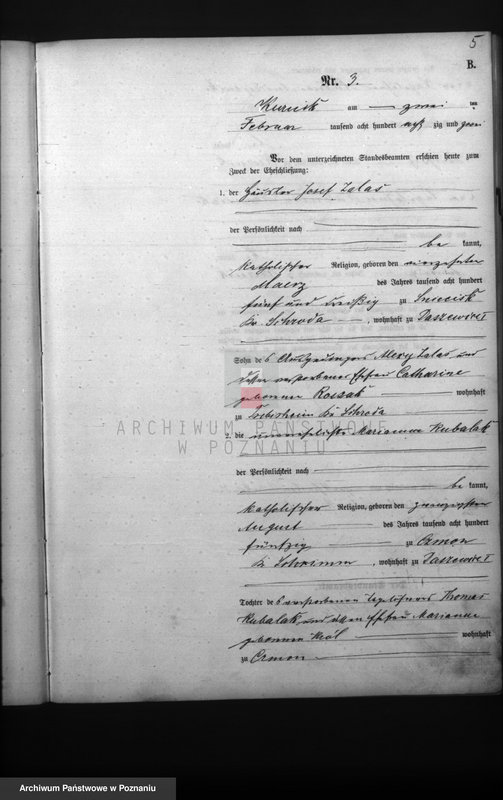 5
B.
Nr. 3.
Kurnik am zwei ten
Februar tausend acht hundert acht zig und zwei
Vor dem unterzeichneten Standesbeamten erschien heute zum
Zweck der Eheschließung:
1. der Häusler Josef Zalas
der Persönlichkeit nach
be kannt,
katholischer Religion, geboren den vierzehnten
Maerz des Jahres tausend acht hundert
fünf und dreißig zu
Kr. Schroda, wohnhaft zu Daszewice
Sohn des Alexy Zalas und
dessen verstorbener Ehefrau Catharine
geborenen wohnhaft
zu Kr. Schroda
ARCHIWUM PAŃSTWOWE
W POZNANIU
2. die unverehelichte Marianna Kubalak
der Persönlichkeit nach
be kannt,
katholischer Religion, geboren den zwanzigsten
August des Jahres tausend acht hundert
fünfzig zu
Kr. Schrimm, wohnhaft zu Daszewice
Tochter des verstorbenen Tagelöhners Thomas
Kubalak und dessen Ehefrau Marianna
geborenen Król wohnhaft
zu
Archiwum Państwowe w Poznaniu